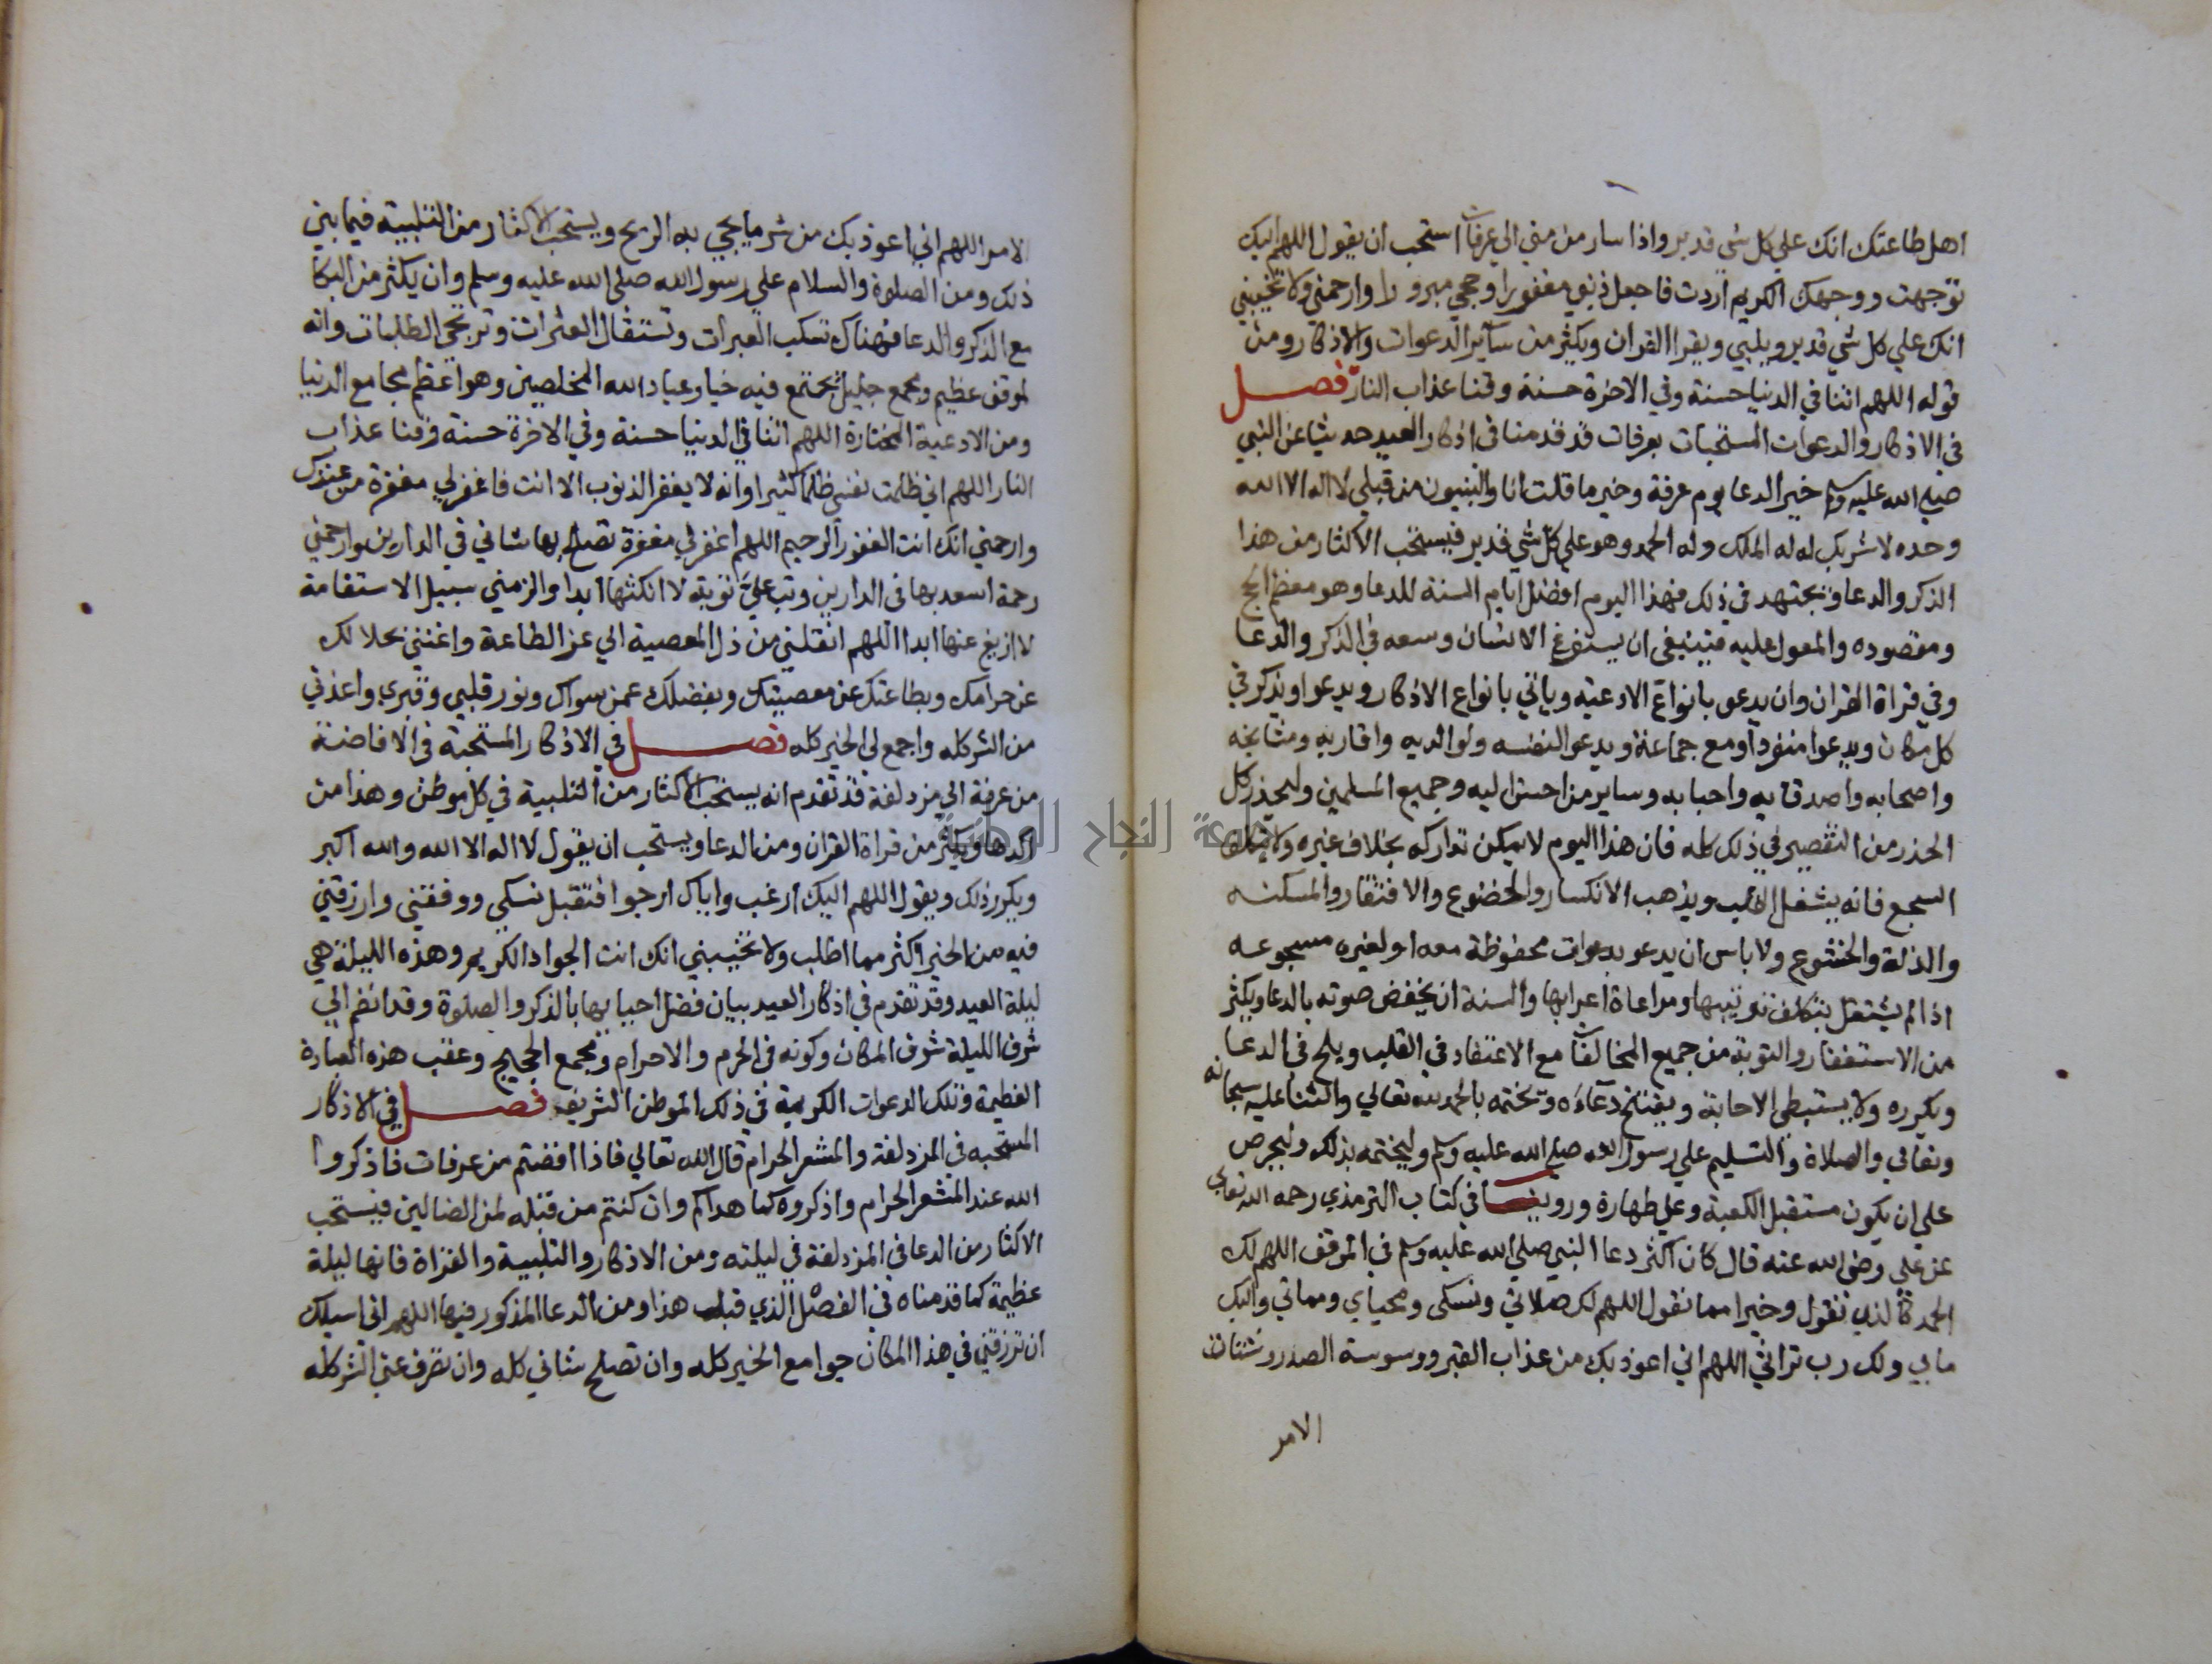 اهل طاعتك انك علي كل شي قدير واذا سار من مني الي عرفات استحب ان يقول اللهم اليك
توجهت ووجهك الكريم اردت فاجعل ذنبي مغفورا وحجي مبرورا وارحمني ولا تخيبني
انك علي كل شي قدير ويلبي ويقرا القران ويكثر من سائر الدعوات والاذكار ومن
قوله اللهم اتنا في الدنيا حسنة وفي الاخرة حسنة وقنا عذاب النار فصل
في الاذكار والدعوات المستحبات بعرفات قد قدمنا في اذكار العيد حديثا عن النبي
صلي الله عليه وسلم خير الدعا يوم عرفة وخير ما قلت انا والنبيون من قبلي لا اله الا الله
وحده لا شريك له له الملك وله الحمد وهو علي كل شي قدير فيستحب الاكثار من هذا
الذكر والدعا ويجتهد في ذلك فهذا اليوم افضل ايام السنة للدعا وهو معظم الحج
ومقصوده والمعول عليه فينبغي ان يستفرغ الانسان وسعه في الذكر والدعا
وفي قراة القران وان يدعو بانواع الادعية وياتي بانواع الاذكار ويدعو ويذكر في
كل مكان ويدعوا منفردا ومع جماعة ويدعو لنفسه ولوالديه واقاربه ومشايخه
واصحابه واصدقايه واحبابه وساير من احسن اليه وجميع المسلمين وليحذر كل
الحذر من التقصير في ذلك كله فان هذا اليوم لا يمكن تداركه بخلاف غيره ولا يتكلف
السجع فانه يشغل القلب ويذهب الانكسار والخضوع والافتقار والمسكنه
والذلة والخشوع ولا باس ان يدعو بدعوات محفوظة معه او لغيره مسجوعه
اذا لم يشتغل بتكلف ترتيبها ومراعاة اعرابها والسنة ان يخفض صوته بالدعا ويكثر
من الاستغفار والتوبة من جميع المخالفات مع الاعتقاد في القلب ويلح في الدعا
ويكرره ولا يستبطي الاجابة ويفتتح دعاءه ويختمه بالحمد لله تعالي والثنا عليه سبحانه
وتعالي والصلاة والتسليم علي رسول الله صلي الله عليه وسلم وليختمه بذلك وليحرص
علي ان يكون مستقبل الكعبة وعلي طهارة وروينا في كتاب الترمذي رحمه الله تعالي
عن علي رضي الله عنه قال كان اكثر دعا النبي صلي الله عليه وسلم في الموقف اللهم لك
الحمد كالذي نقول وخيرا مما نقول اللهم لك صلاتي ونسكي ومحياي ومماتي واليك
مابي ولك رب تراثي اللهم اني اعوذ بك من عذاب القبر ووسوسة الصدر وشتات
الامر
الامر اللهم اني اعوذ بك من شر ما يجي به الريح ويستحب الاكثار من التلبية فيما بين
ذلك ومن الصلوة والسلام علي رسول الله صلي الله عليه وسلم وان يكثر من البكا
مع الذكر والدعا فهناك تسكب العبرات وتستقال العثرات وترتجي الطلبات وانه
لموقف عظيم ومجمع جليل يجتمع فيه خيار عباد الله المخلصين وهو اعظم مجامع الدنيا
ومن الادعية المختارة اللهم اتنا في الدنيا حسنة وفي الاخرة حسنة وقنا عذاب
النار اللهم اني ظلمت نفسي ظلما كثيرا وانه لا يغفر الذنوب الا انت فاغفر لي مغفرة من عندك
وارحمني انك انت الغفور الرحيم اللهم اغفر لي مغفرة تصلح بها شاني في الدارين وارحمني
رحمة اسعد بها في الدارين وتب علي توبة لا انكثها ابدا والزمني سبيل الاستقامة
لا ازيغ عنها ابدا اللهم انقلني من ذل المعصية الي عز الطاعة واغنني بحلالك
عن حرامك وبطاعتك عن معصيتك وبفضلك عمن سواك ونور قلبي وقبري واعذني
من الشر كله واجمع لي الخير كله فصل في الاذكار المستحبة في الافاضة
من عرفة الي مزدلفة قد تقدم انه يستحب الاكثار من التلبية في كل موطن وهذا من
اكدها ويكثر من قراة القران ومن الدعا ويستحب ان يقول لا اله الا الله والله اكبر
ويكرر ذلك ويقول اللهم اليك ارغب واياك ارجو فتقبل نسكي ووفقني وارزقني
فيه من الخير اكثر مما اطلب ولا تخيبني انك انت الجواد الكريم وهذه الليلة هي
ليلة العيد وقد تقدم في اذكار العيد بيان فضل احيايها بالذكر والصلوة وقد انضم الي
شرف الليلة شرف المكان وكونه في الحرم والاحرام ومجمع الحجيج وعقب هذه العبادة
العظيمة وتلك الدعوات الكريمة في ذلك الموطن الشريف فصل في الاذكار
المستحبه في المزدلفة والمشعر الحرام قال الله تعالي فاذا افضتم من عرفات فاذكروا
الله عند المشعر الحرام واذكروه كما هداكم وان كنتم من قبله لمن الضالين فيستحب
الاكثار من الدعا في المزدلفة في ليلته ومن الاذكار والتلبية والقراة فانها ليلة
عظيمة كما قدمناه في الفصل الذي قبله هذا ومن الدعا المذكور فيها اللهم اني اسيلك
ان ترزقني في هذا المكان جوامع الخير كله وان تصلح شاني كله وان تصرف عني الشر كله
جامعة النجاح الوطنية